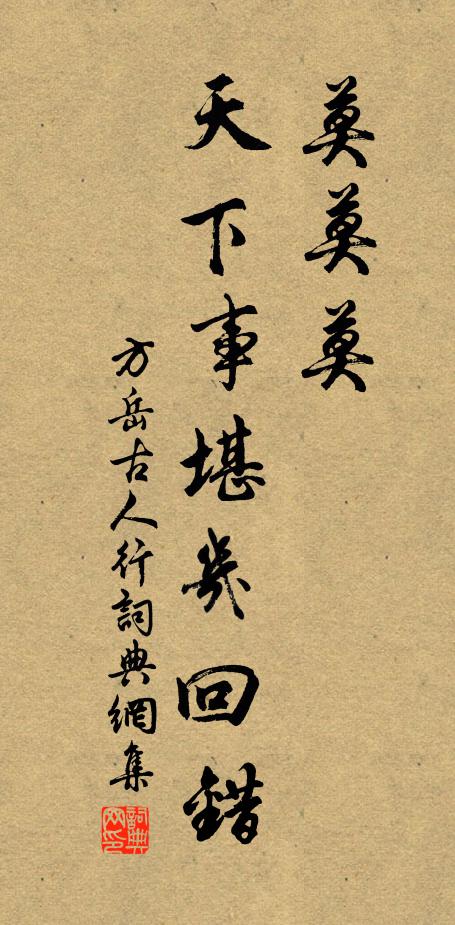 莫莫莫
天下事堪幾回錯
方岳古人行詞典網集
詞典
网印